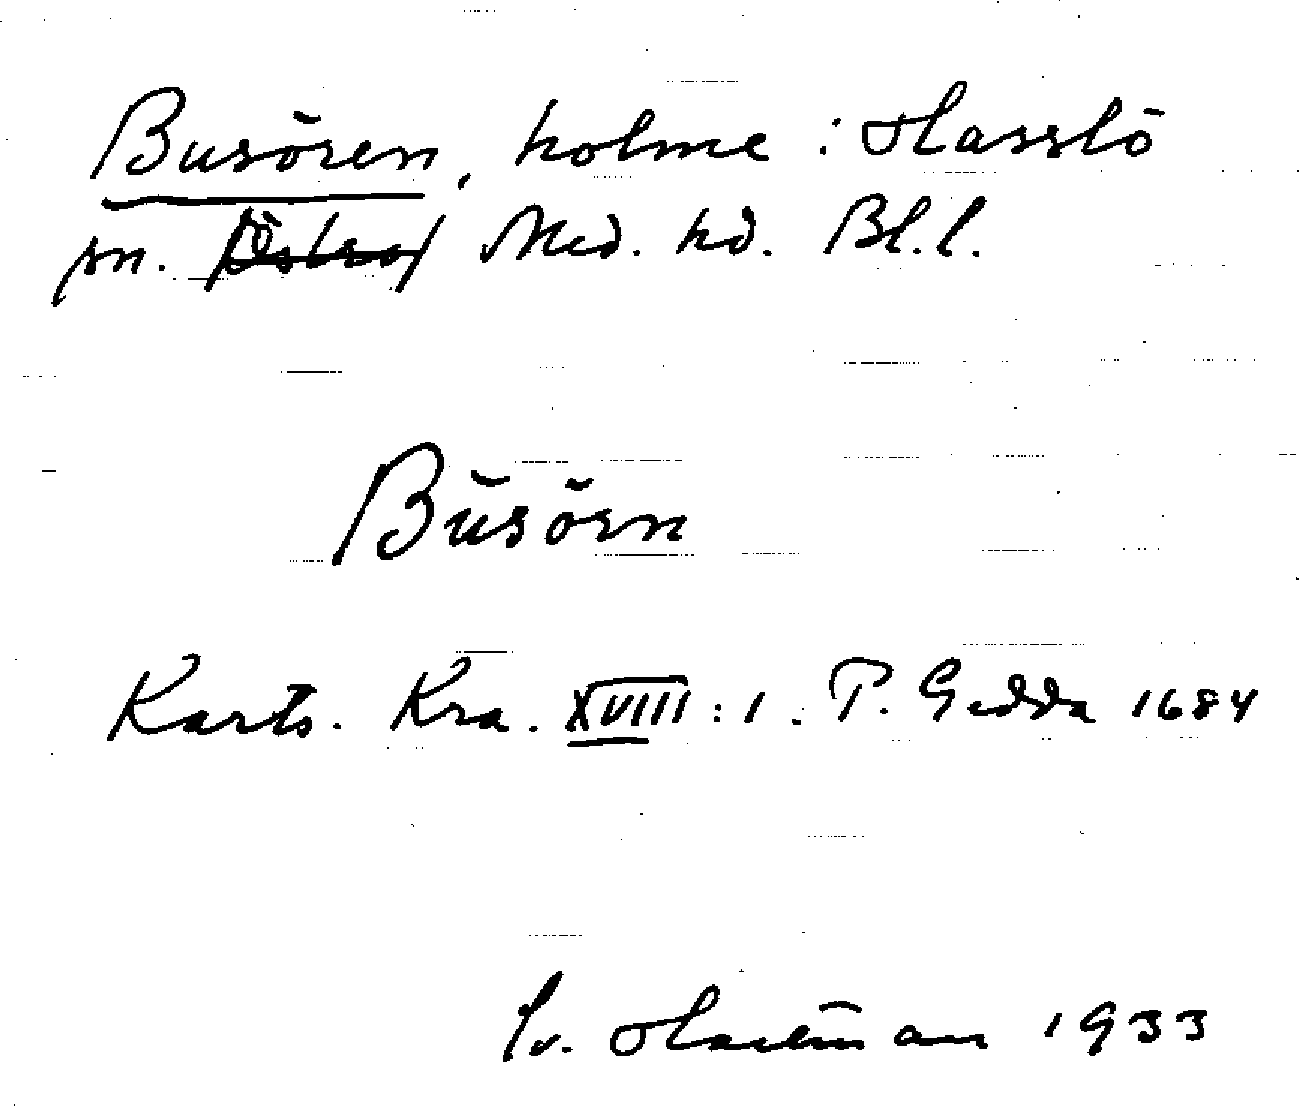 Busören, holme : Hasslö
sn. Östra Med. hd. Bl. l.
Busörn
Karts. Kra. XVIII : 1. P. Gedda 1684
Sv. 1933